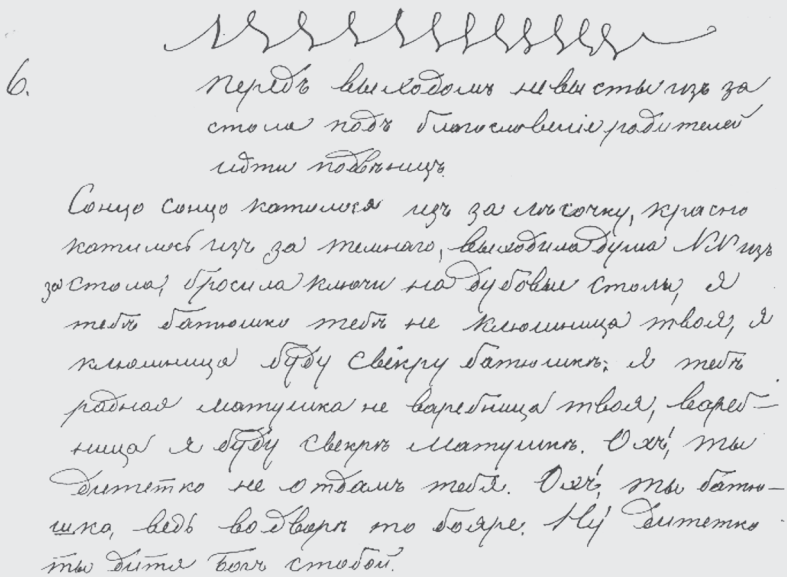 6. Передъ выходомъ невысты изъ за
стола подъ благословеніе родителей
идти подвѣнецъ.
Сонцо сонцо катилося изъ за лѣсочку, красно
катилось изъ за темнаго, выходила душа NN изъ
за стола, бросила ключи на дубовые столы, я
тебѣ батюшко тебѣ не ключница твоя, я
ключница буду свёкру батюшкѣ; я тебѣ
родная матушка не варебница твоя, вареб-
ница я буду свекрѣ матушкѣ. Охъ, ты
дитетко не отдамъ тебя. Охъ, ты батю-
шка, ведь водворѣ то бояре. Ну дитетко
ты дитя Богъ стобой.